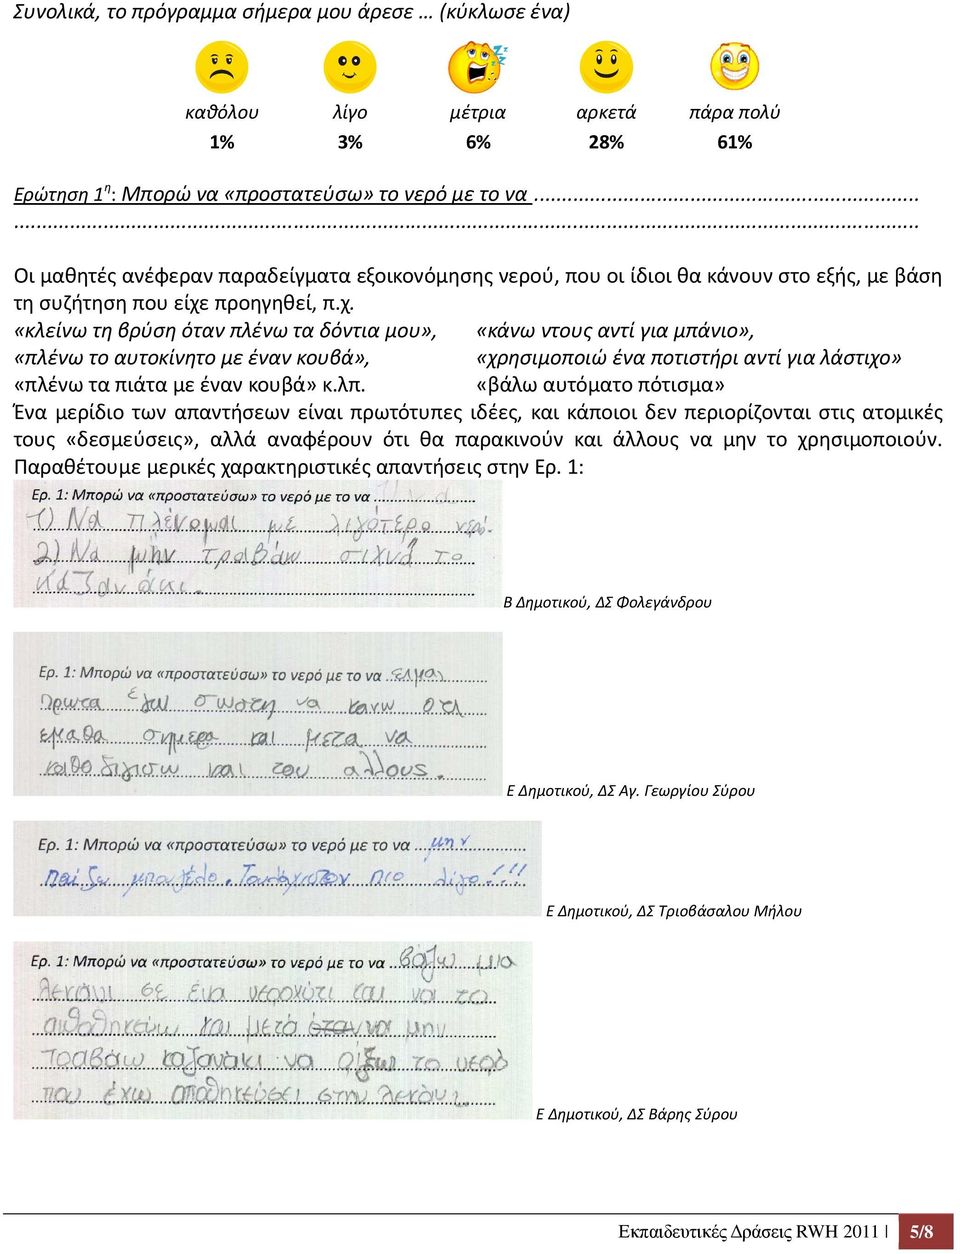 Συνολικά, το πρόγραμμα σήμερα μου άρεσε … (κύκλωσε ένα)
καθόλου λίγο μέτρια αρκετά πάρα πολύ
1% 3% 6% 28% 61%
Ερώτηση 1η: Μπορώ να «προστατεύσω» το νερό με το να ...
...
Οι μαθητές ανέφεραν παραδείγματα εξοικονόμησης νερού, που οι ίδιοι θα κάνουν στο εξής, με βάση
τη συζήτηση που είχε προηγηθεί, π.χ.
«κλείνω τη βρύση όταν πλένω τα δόντια μου», «κάνω ντους αντί για μπάνιο»,
«πλένω το αυτοκίνητο με έναν κουβά», «χρησιμοποιώ ένα ποτιστήρι αντί για λάστιχο»
«πλένω τα πιάτα με έναν κουβά» κ.λπ. «βάλω αυτόματο πότισμα»
Ένα μερίδιο των απαντήσεων είναι πρωτότυπες ιδέες, και κάποιοι δεν περιορίζονται στις ατομικές
τους «δεσμεύσεις», αλλά αναφέρουν ότι θα παρακινούν και άλλους να μην το χρησιμοποιούν.
Παραθέτουμε μερικές χαρακτηριστικές απαντήσεις στην Ερ. 1:
Ερ. 1: Μπορώ να «προστατεύσω» το νερό με το να ...
1) Να πλένομαι με λιγότερο νερό.
2) Να μήν τραβάω σιχνά το
καζανάκι.
Β Δημοτικού, ΔΣ Φολεγάνδρου
Ερ. 1: Μπορώ να «προστατεύσω» το νερό με το να ... είμαι
πρωτα εγω σωστη να κανω οτι
εμαθα σημερα και μετα να
καθοδιγισω και του αλλους.
Ε Δημοτικού, ΔΣ Αγ. Γεωργίου Σύρου
Ερ. 1: Μπορώ να «προστατεύσω» το νερό με το να ... μην
παίζω μπουγέλο. Τουλάχιστον πιο λίγο!!!
Ε Δημοτικού, ΔΣ Τριοβάσαλου Μήλου
Ερ. 1: Μπορώ να «προστατεύσω» το νερό με το να ... βάζω μια
λεκάνη σε ένα νεροχύτι και να το
αποθηκεύω και μετά όταν να μην
τραβάω καζανάκι να ρίξω το νερό
που έχω αποθηκεύσει στην λεκάνι.
Ε Δημοτικού, ΔΣ Βάρης Σύρου
Εκπαιδευτικές Δράσεις RWH 2011 | 5/8